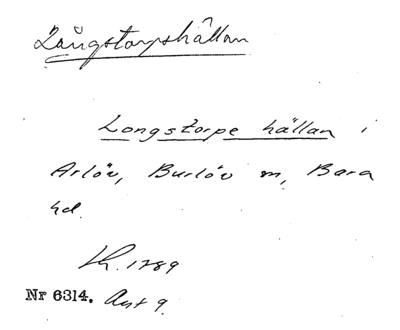 Långstorpshällan
Longstorpe hällan i
Arlöv, Burlöv m, Bara
hd.
Lh. 1789
Nr 6314. Akt 9.